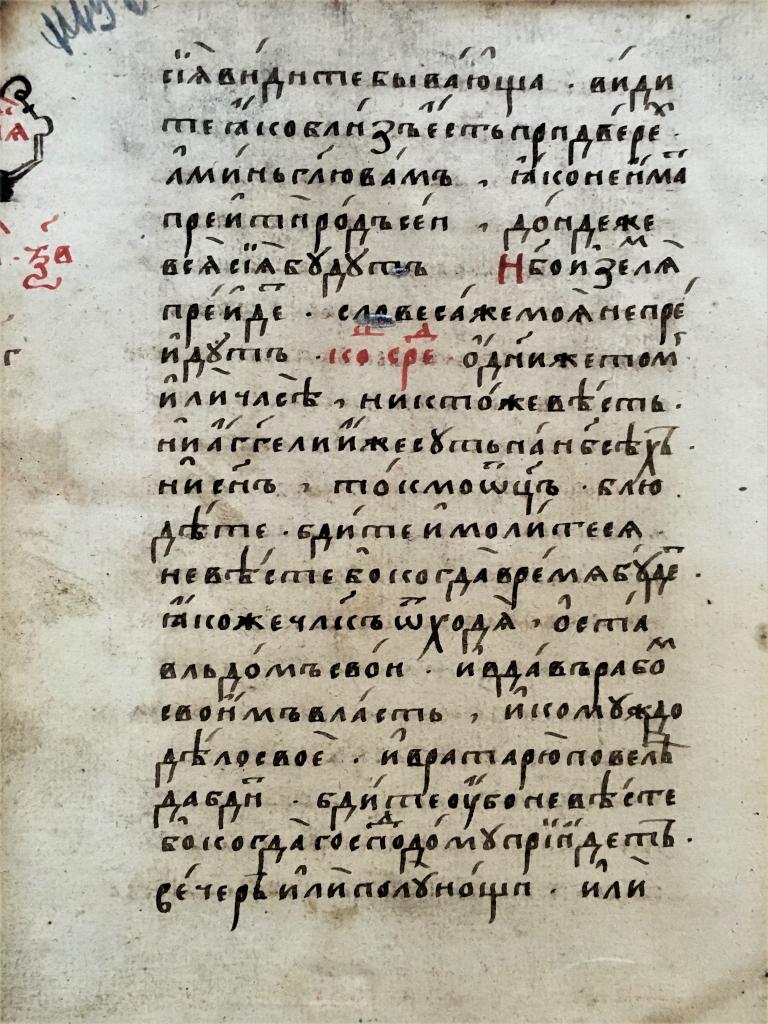 сїѧ̀ ви́дите быва́юща . ви́ди
те ꙗ҆́ко бли́зъ є҆́сть при две́ре́х .
а҆ми́нь гл҃ю ва́мъ , ꙗ҆́ко не и҆́мат
прейти̑ ро́дъ се́и , до́ндеже
всѧ̀ сїѧ̀ бу́дутъ Нб҃о и҆ землѧ̀
пре́йдет . словеса́ же моѧ̀ не пре́
и҆ду́тъ . ко сре ѡ҆ дни́ же томъ
и҆лѝ часѣ̀ , никто́же вѣ́сть .
ни а҆́гг҃ели и҆̀же су́ть на нб҃сѣ́хъ .
ни сн҃ъ , то́кмо ѿц҃ъ . блю
дѣ́те . бди́те и҆ моли́теся .
не вѣ́сте бо когда̀ вре́мя бу́дет .
ꙗ҆́коже чл҃къ ѿходѧ̀ , ѡ҆ста́
вль до́мъ сво́и . и҆ вда́въ рабо́м
свои҆́мъ вла́сть , и҆ комуждо
дѣ́ло своѐ . и҆ врата́рю повелѣ̀
да бди́т . бди́те оу҆́бо не вѣ́сте
бо когда̀ госпо́дь до́му прїи҆́детъ .
ве́черъ и҆лѝ полу́нощи . и҆лѝ